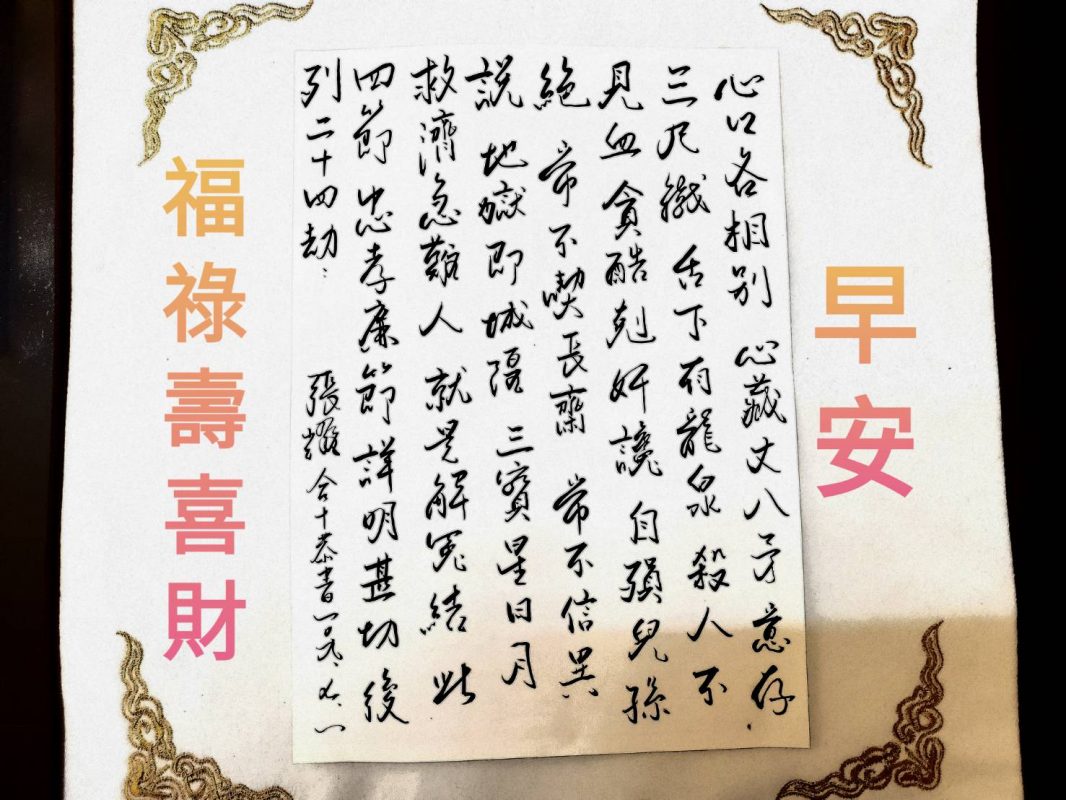 早安
心口各相別 心藏丈八矛 意存
三尺鐵 舌下有龍泉 殺人不
見血 貪酷剋奸讒 自殞兒孫
絕 常不喫長齋 常不信異
說 地獄即城隍 三寶星日月
救濟急難人 就是解冤結 此
四節忠孝廉節詳明甚切後
列二十四劫：
張 合十恭書
福祿壽喜財